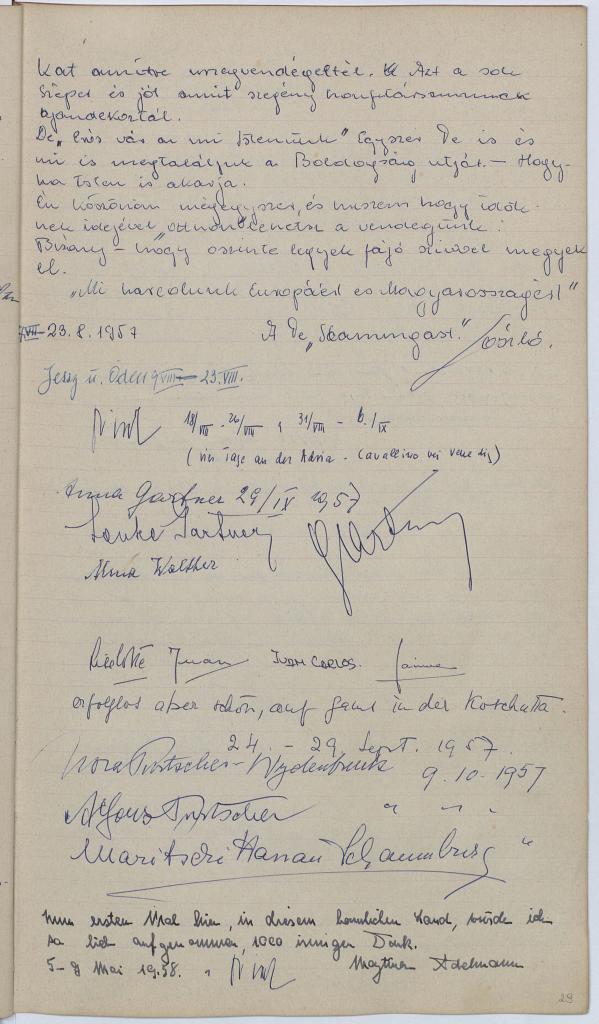 kat annyira megvendégeltél. Azt a sok
szépet és jót amit szegény honfitársaimnak
ajándékoztál.
De „Erős vár a mi Istenünk" Egyszer Te is és
mi is megtaláljuk a Boldogság utját. — Hogy-
ha Isten is akarja.
Én köszönöm mégegyszer, és hiszem hogy idők-
nek idejével a vendégünk!
Bizony — hogy őszinte legyek fájó szívvel megyek
el.
„Mi harcolunk Európáért és Magyarországért"
23.8.1957 A Te
Jessy u. Öden 9 VIII — 23. VIII.
18/VIII - 26/VIII, 31/VIII - 6./IX
(vier Tage an der Adria - Cavallino bei Venedig)
Anna Gartner 29/IX 1957
Gartner
Alma Walther
Juan Juan Carlos. Jaime
erfolglos aber schön, auf Gams in der Koschutta.
24. - 29. Sept. 1957.
Nora Purtscher-Wydenbruck 9.10.1957
Alfons Purtscher " " "
Maritschi Hanau Schaumburg "
Zum ersten Mal hier, in diesem herrlichen Land, wurde ich
so lieb aufgenommen, 1000 inniger Dank.
5-9 Mai 1958. Adelmann
29